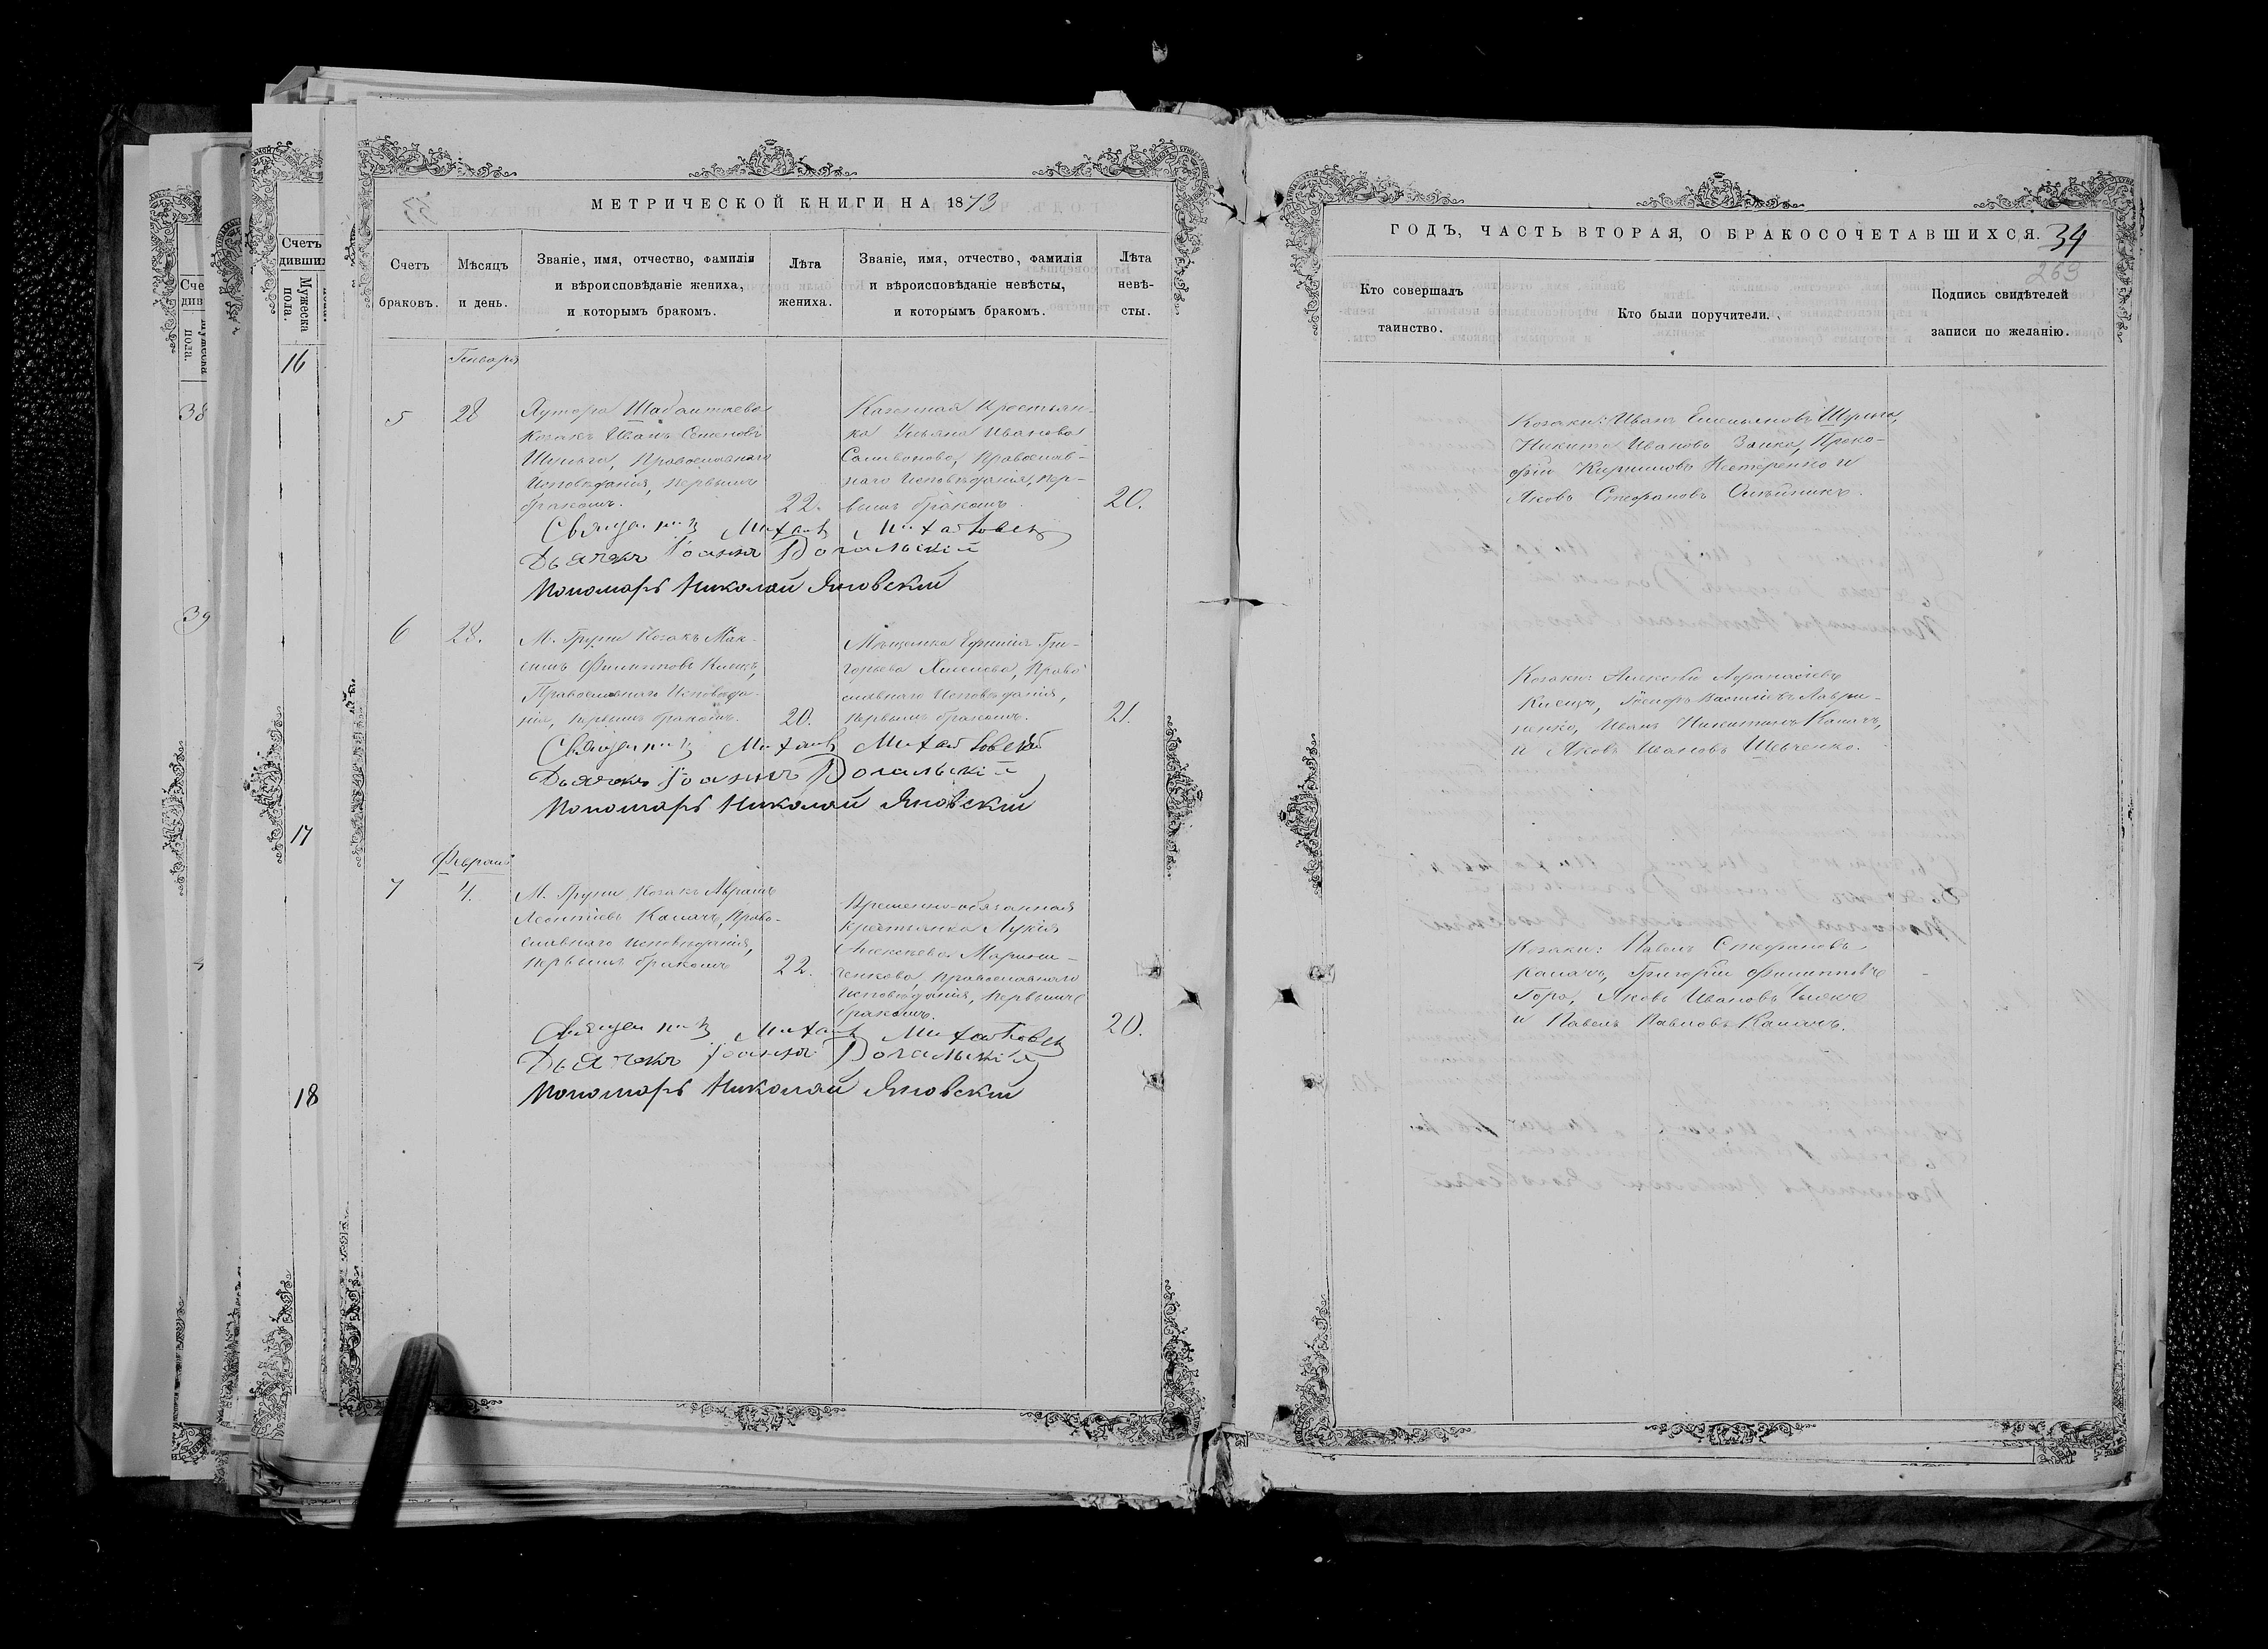 МЕТРИЧЕСКОЙ КНИГИ НА 1873
Счетъ браковъ.
Мѣсяцъ и день.
Званіе, имя, отчество, фамилія
и вѣроисповѣданіе жениха,
и которымъ бракомъ.
Лѣта жениха.
Званіе, имя, отчество, фамилія
и вѣроисповѣданіе невѣсты,
и которымъ бракомъ.
Лѣта невѣ-
сты.
Генваря
5
28
Хутора
Козакъ Иванъ Семеновъ
Шульга, Православнаго
Исповѣданія, первымъ
бракомъ.
22.
Казенная Крестьян-
ка Ульяна Иванова
Православ-
наго Исповѣданія, пер-
вымъ бракомъ.
20.
Священникъ Михаилъ
Дьячекъ Іоаннъ
Пономарь Николай Яновскій
6
28.
М. Груни Козакъ Мак-
симъ Филиповъ Киецъ,
Православнаго Исповѣда-
нія, первымъ бракомъ.
20.
Мѣщанка Ефимія Гри-
горьева Право
славнаго Исповѣданія,
первымъ бракомъ.
21.
Священникъ Михаилъ
Дьячекъ Іоаннъ
Пономарь Николай Яновскій
Февраля
7
4.
М. Груни Козакъ Абрамъ
Леонтіевъ Калачъ, Право-
славнаго исповѣданія,
первымъ бракомъ
22.
Временно-обязанная
Крестьянка Лукія
Алексѣева
Православнаго
Исповѣданія, первымъ
бракомъ.
20.
Священникъ Михаилъ
Дьячекъ Іоаннъ
Пономарь Николай Яновскій
ГОДЪ, ЧАСТЬ ВТОРАЯ, О БРАКОСОЧЕТАВШИХСЯ.
34
263
Кто совершалъ
таинство.
Кто были поручители.
Подпись свидѣтелей
записи по желанію.
Козаки: Иванъ Емельяновъ Шульга,
Никита Ивановъ Заика, Проко-
фій Кириловъ Нестеренко и
Яковъ Стефановъ Олѣйникъ.
Козаки: Алексѣй Афанасіевъ
Киецъ, Іосифъ Васильевъ Лаври-
ненко, Иванъ Никитинъ Калачъ,
и Яковъ Ивановъ Шевченко.
Козаки: Павелъ Стефановъ
Калачъ, Григорій Филипповъ
Гора, Яковъ Ивановъ
и Павелъ Павловъ Калачъ.
Счетъ
дивши
Мужеска
пола.
16
17
18
Сче
див
пола.
38
39